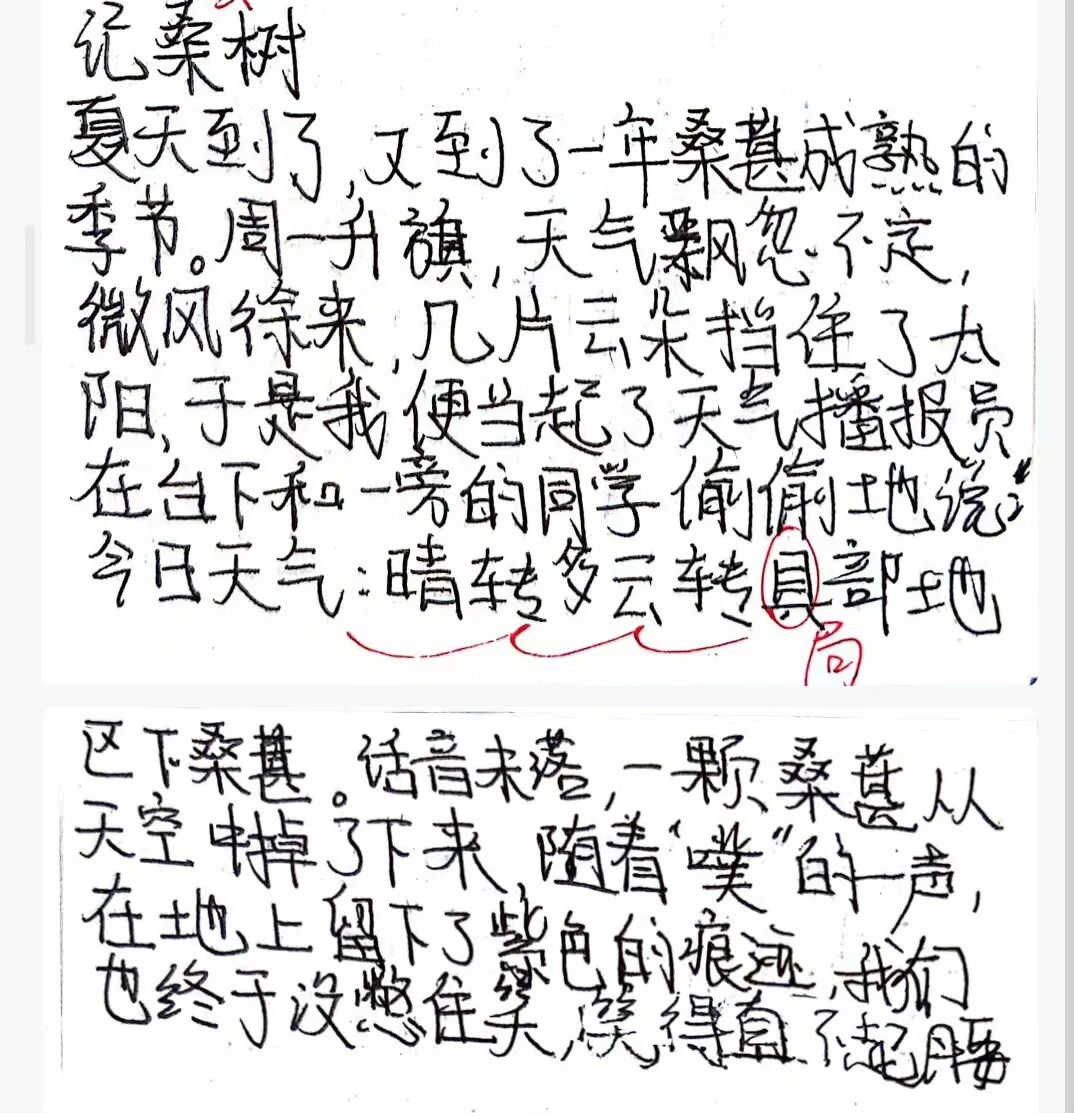 记桑树
夏天到了,又到了一年桑葚成熟的
季节。周一升旗,天气飘忽不定,
微风徐来,几片云朵挡住了太
阳,于是我便当起了天气播报员
在台下和一旁的同学偷偷地说:“
今日天气:晴转多云转具部地
局
区下桑葚。话音未落,一颗桑葚从
天空中掉了下来,随着“噗”的一声,
在地上留下了紫色的痕迹,我们
也终于没憋住笑,笑得直不起腰